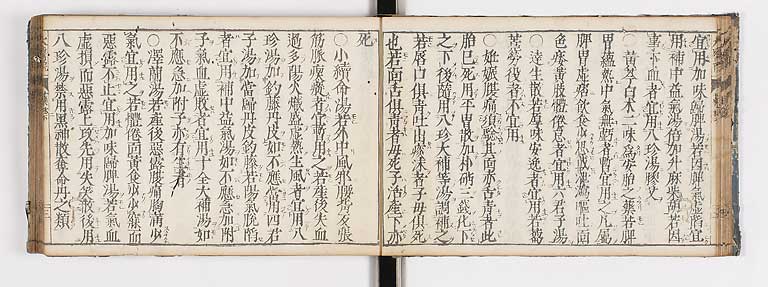 宜用加味歸脾湯若因脾氣虛䧟宜
用補中益氣湯倍加升麻柴胡若因
事下血者宜用八珍湯膠艾
○黃芩白朮二味為安胎之藥若脾
胃蘊熱中氣無虧者暫宜用之凡屬
脾胃虛痛飲食少思或瀉嘔吐面
色痿黃肢體倦怠者宜用六君子湯
○達生散若厚味安逸者宜用若勤
苦勞役者不宜用
○姙娠腹痛須驗其面赤舌青者此
胎已死用平胃散加朴硝三錢化下
之下後隨用八珍大補等湯調補之
若唇口俱青吐出痰沫者子母俱死
也若面舌俱青者母死子活產下亦
死
○小續命湯若外中風邪腰背反張
筋脈瘈瘲者宜用之若產後失血
過多陰火熾盛虛熱生風者宜用八
珍湯加鈎藤丹皮如不應當用四君
子湯加當歸丹皮鈎藤若陽氣脫䧟
者宜用補中益氣湯如不應急加附
子氣血虛敗者宜用十全大補湯如
不應急加附子亦有生者
○澤蘭湯若產後惡露腹痛胸滿少
氣宜用之若體倦面黃食少寐而
惡露不止宜用加味歸脾湯若氣血
虛損而惡露上攻先用失笑散後用
八珍湯禁用黑神散奪命丹之類